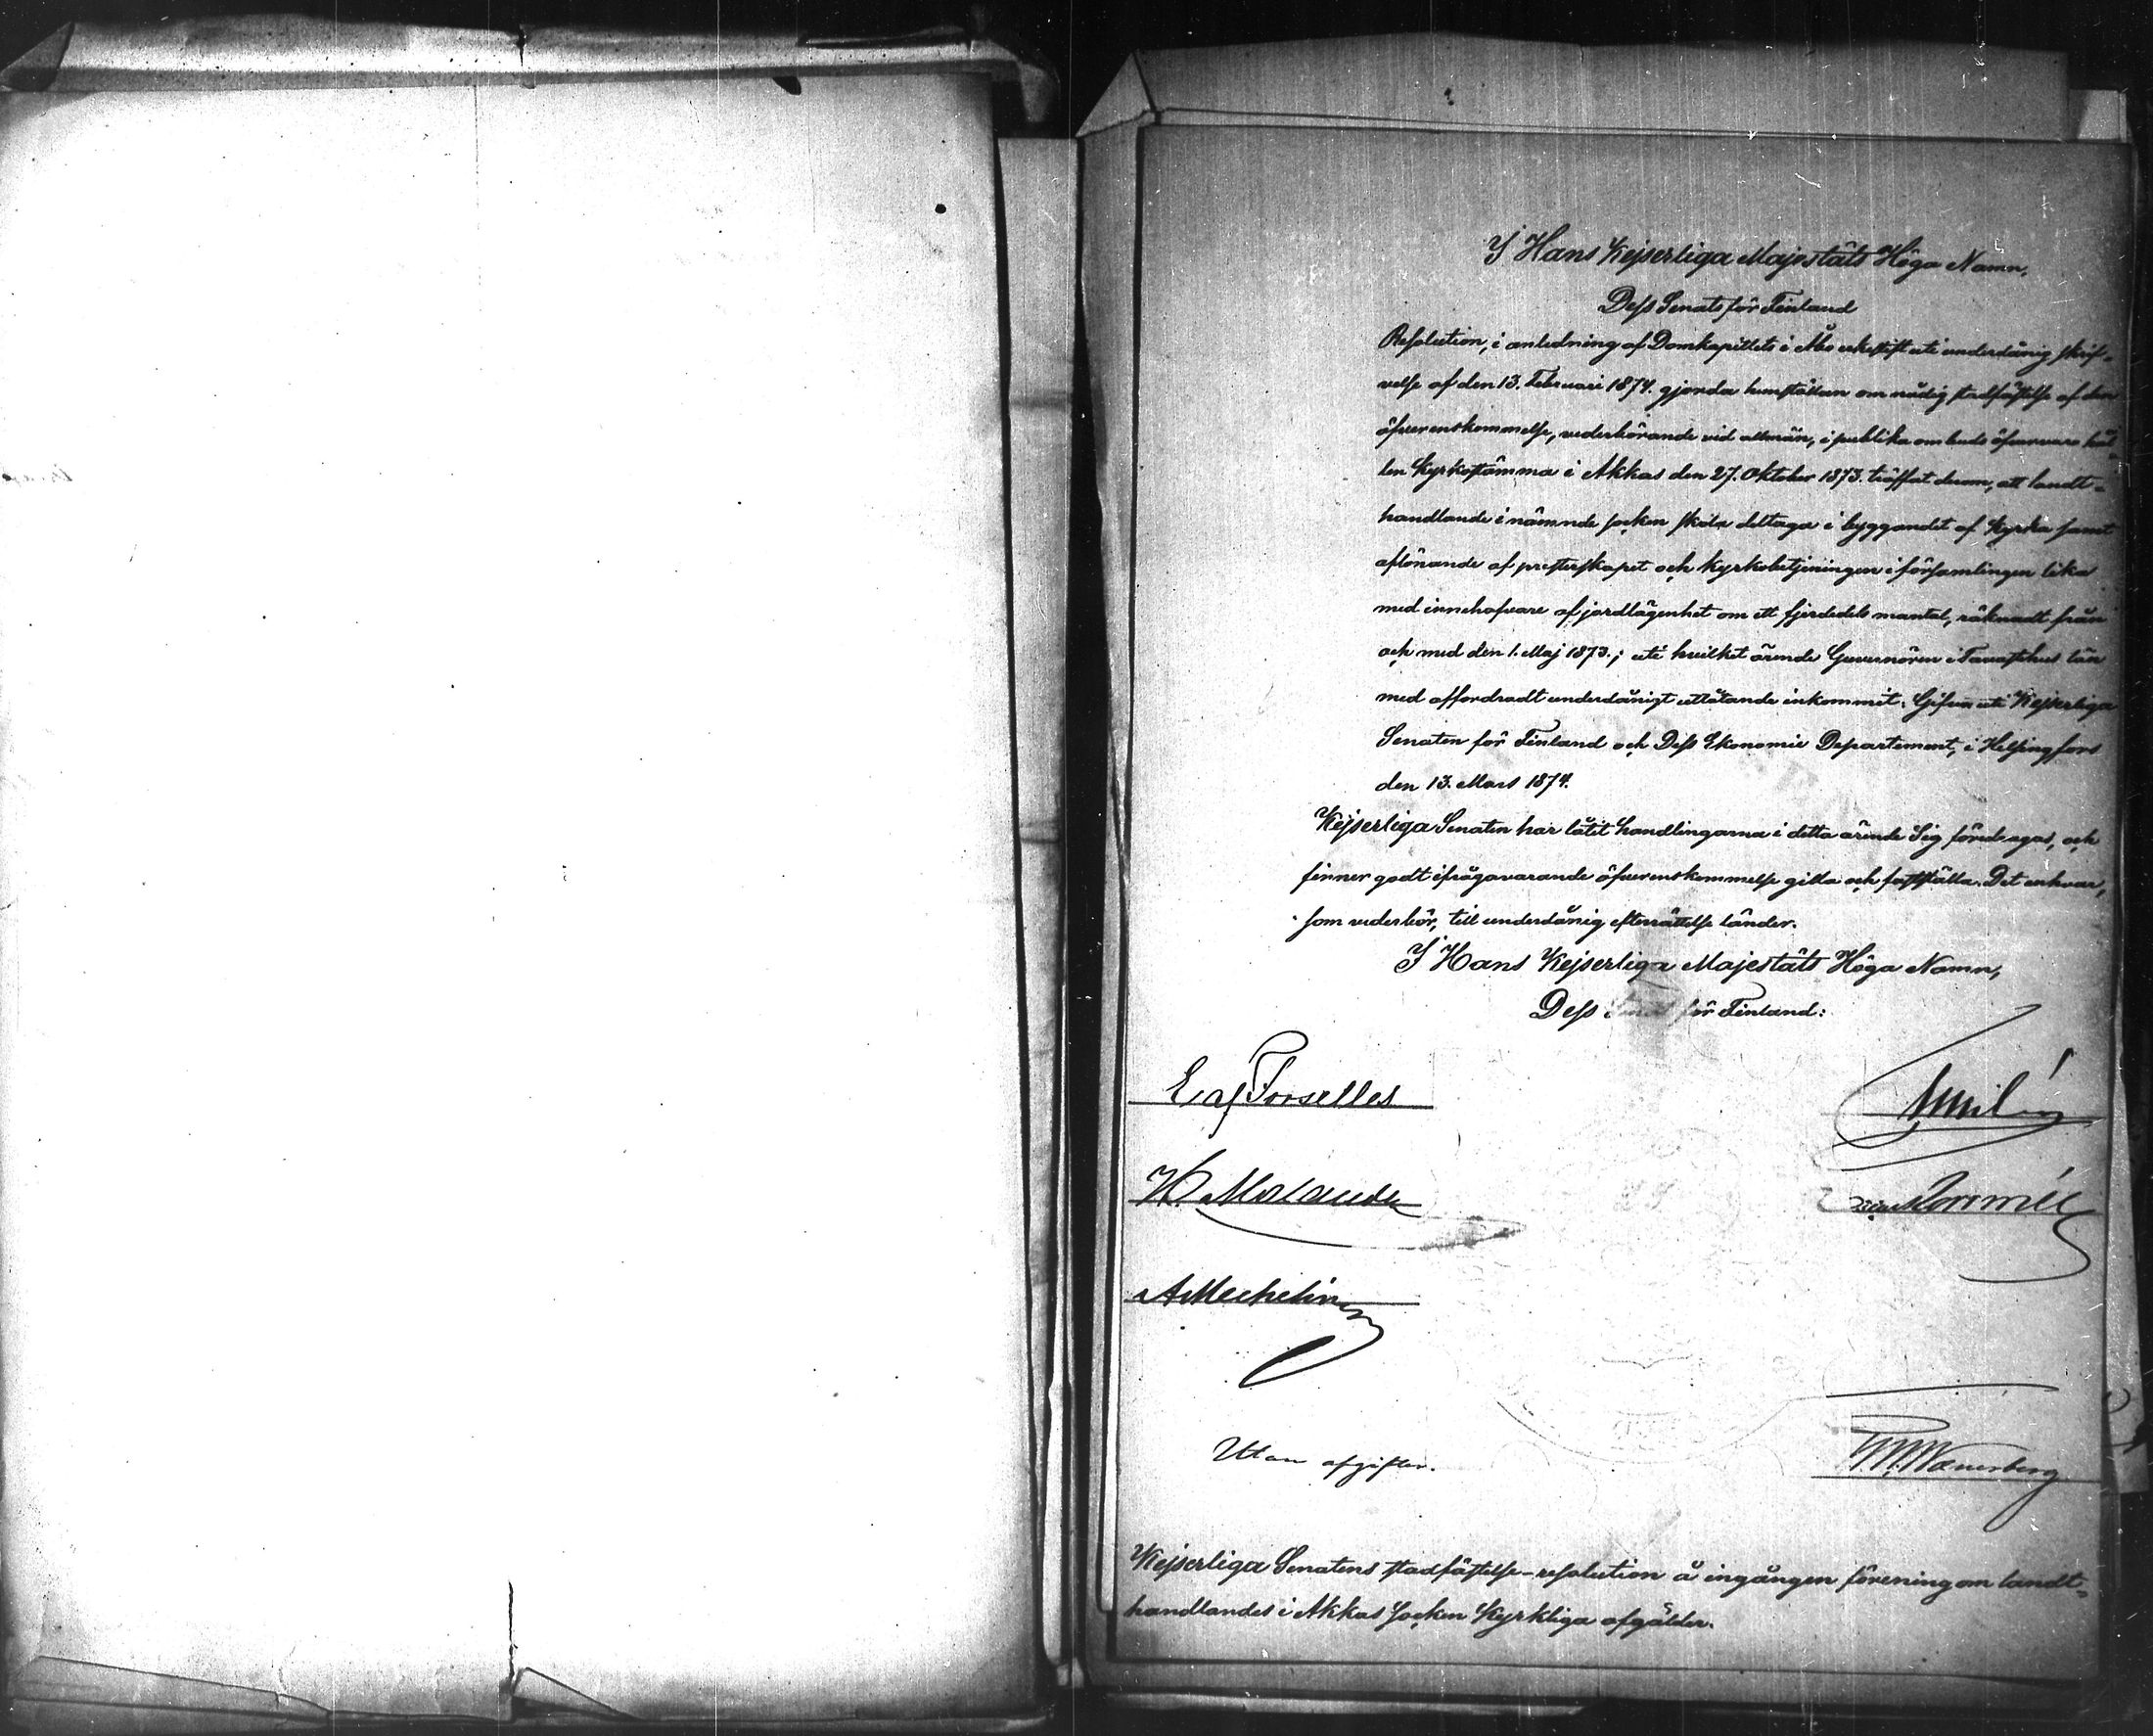 I Hans Kejserliga Majestäts Höga Namn,
Dess Senats för Finland
Resolution, i anledning af Domkapitlets i Åbo erkestift uti underdånig skrif-
velse af den 13. Februari 1874. gjorda hemställan om nådig stadfästelse af den
öfverenskommelse, vederbörande vid allmän, i publika ombuds öfvervaro hål-
len Kyrkostämma i Akkas den 27. Oktober 1873. träffat derom, att landt-
handlande i nämnde socken skola deltaga i byggandet af Kyrka samt
aflönande af presterskapet och kyrkobetjeningen i församlingen lika
med innehafvare af jordlägenhet om ett fjerdedels mantal, räknadt från
och med den 1. Maj 1873.; uti hvilket ärende Guvernören i Tavastehus län
med affordradt underdånigt utlåtande inkommit. Gifven uti Kejserliga
Senaten för Finland och Dess Ekonomie Departement, i Helsingfors
den 13. Mars 1874.
Kejserliga Senaten har låtit handlingarna i detta ärende Sig föredragas, och
finner godt ifrågavarande öfverenskommelse gilla och fastställa. Det enhvar,
som vederbör, till underdånig efterrättelse länder.
I Hans Kejserliga Majestäts Höga Namn,
Dess Senat för Finland:
E af Forselles
H. Molander
A Mechelin
Utan afgifter.
Kejserliga Senatens stadfästelse-resolution å ingången förening om landt-
handlandes i Akkas Socken Kyrkliga afgälder.